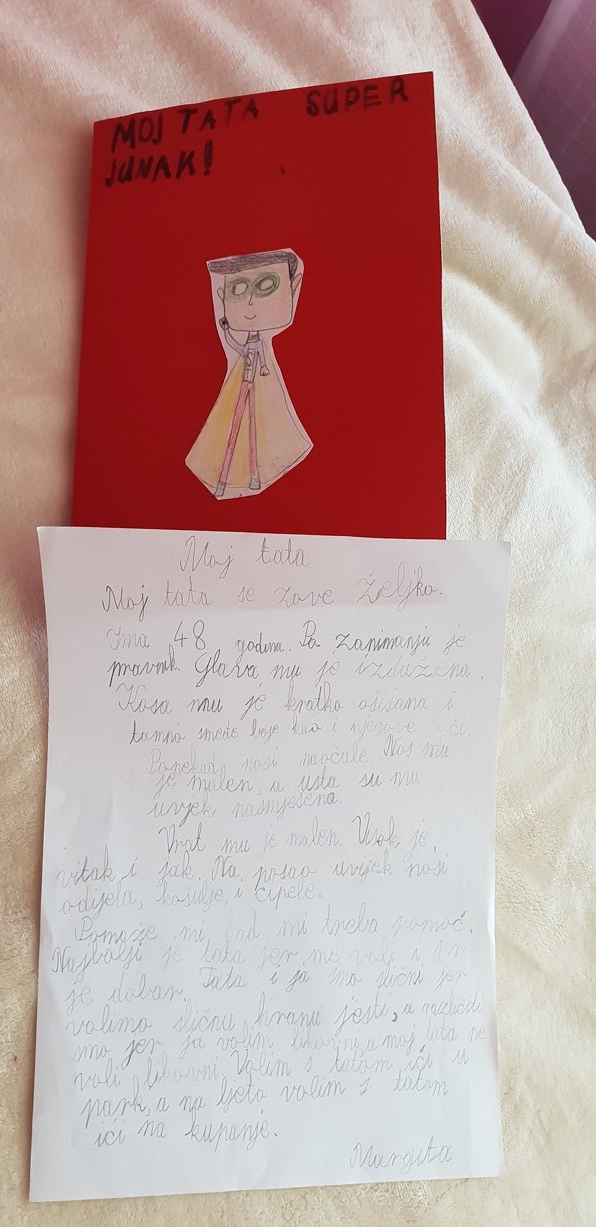 MOJ TATA SUPER
JUNAK!
Moj tata
Moj tata se zove Željko.
Ima 48 godina. Po zanimanju je
pravnik. Glava mu je izdužena.
Kosa mu je kratko ošišana i
tamno smeđe boje kao i njegove oči.
Ponekad nosi naočale. Nos mu
je malen, a usta su mu
uvjek nasmješena.
Vrat mu je malen. Visok je,
vitak i jak. Na posao uvjek nosi
odijela, košulje i cipele.
Pomaže mi kad mi treba pomoć.
Najbolji je tata jer me voli i jer
je dobar. Tata i ja smo slični jer
volimo sličnu hranu jesti, a različiti
smo jer ja volim likovni, a moj tata ne
voli likovni. Volim s tatom ići u
park, a na ljeto volim s tatom
ići na kupanje.
Margita